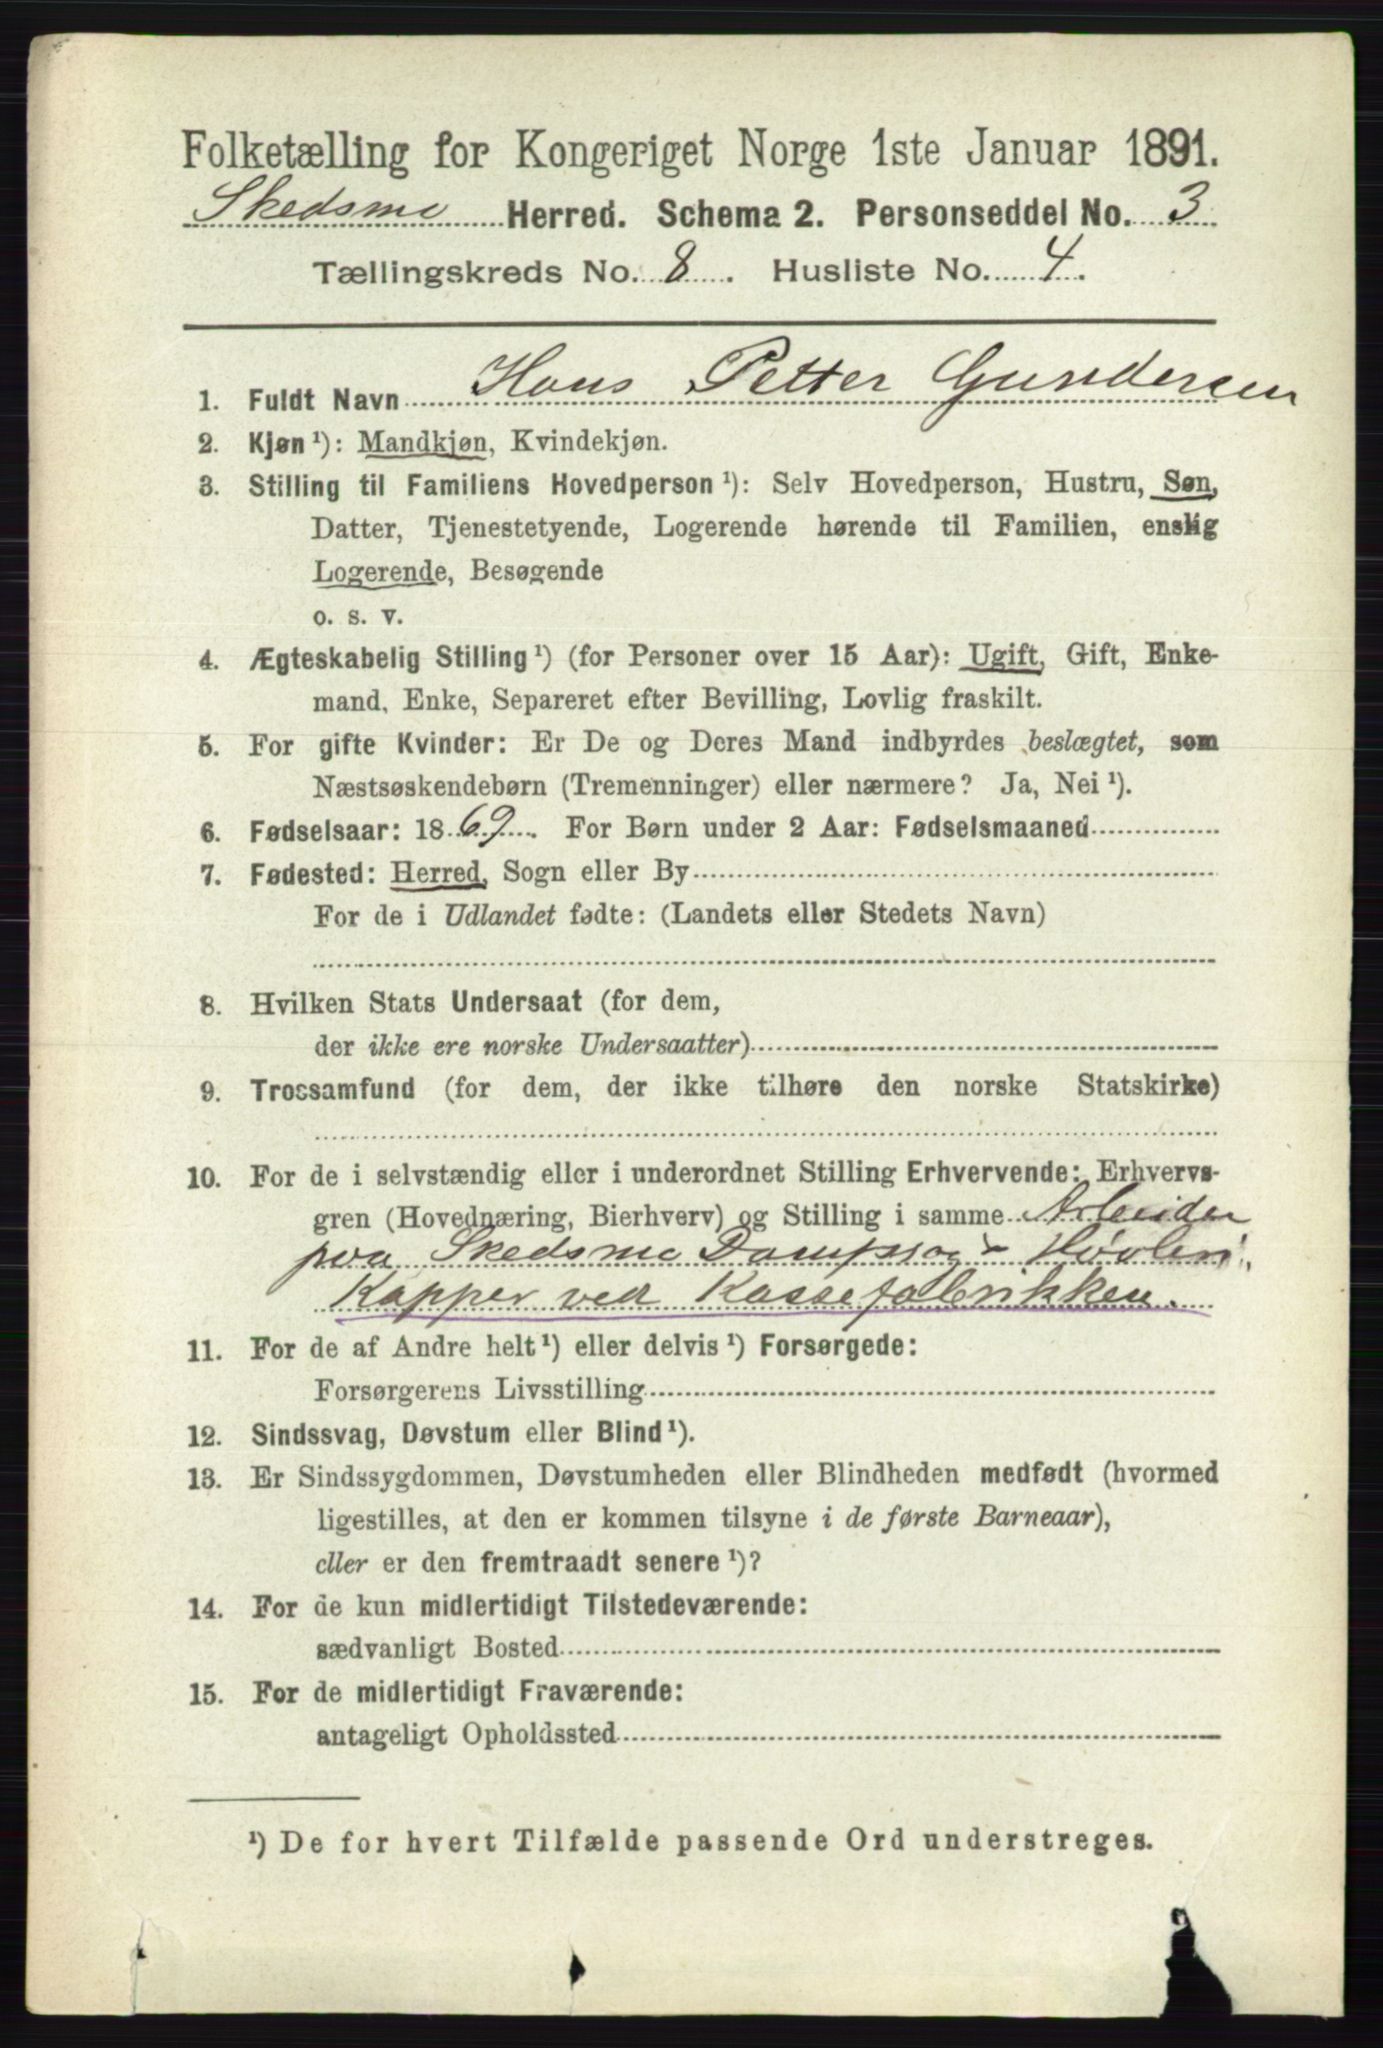 Folketælling for Kongeriget Norge 1ste Januar 1891.
Skedsmo Herred. Schema 2. Personseddel No. 3
Tællingskreds No. 8. Husliste No. 4.
1. Fuldt Navn Hans Petter Gundersen
2. Kjøn ¹): Mandkjøn, Kvindekjøn.
3. Stilling til Familiens Hovedperson ¹): Selv Hovedperson, Hustru, Søn,
Datter, Tjenestetyende, Logerende hørende til Familien, enslig
Logerende, Besøgende
o. s. v.
4. Ægteskabelig Stilling ¹) (for Personer over 15 Aar): Ugift, Gift, Enke-
mand, Enke, Separeret efter Bevilling, Lovlig fraskilt.
5. For gifte Kvinder: Er De og Deres Mand indbyrdes beslægtet, som
Næstsøskendebørn (Tremenninger) eller nærmere? Ja, Nei ¹).
6. Fødselsaar: 1869. For Børn under 2 Aar: Fødselsmaaned
7. Fødested: Herred, Sogn eller By
For de i Udlandet fødte: (Landets eller Stedets Navn)
8. Hvilken Stats Undersaat (for dem,
der ikke ere norske Undersaatter)
9. Trossamfund (for dem, der ikke tilhøre den norske Statskirke)
10. For de i selvstændig eller i underordnet Stilling Erhvervende: Erhvervs-
gren (Hovednæring, Bierhverv) og Stilling i samme Arbeider
paa Skedsmo Dampsag- Høvleri,
Kapper ved Kassefabrikken.
11. For de af Andre helt ¹) eller delvis ¹) Forsørgede:
Forsørgerens Livsstilling
12. Sindssvag, Døvstum eller Blind ¹).
13. Er Sindssygdommen, Døvstumheden eller Blindheden medfødt (hvormed
ligestilles, at den er kommen tilsyne i de første Barneaar),
eller er den fremtraadt senere ¹)?
14. For de kun midlertidigt Tilstedeværende:
sædvanligt Bosted
15. For de midlertidigt Fraværende:
antageligt Opholdssted
¹) De for hvert Tilfælde passende Ord understreges.